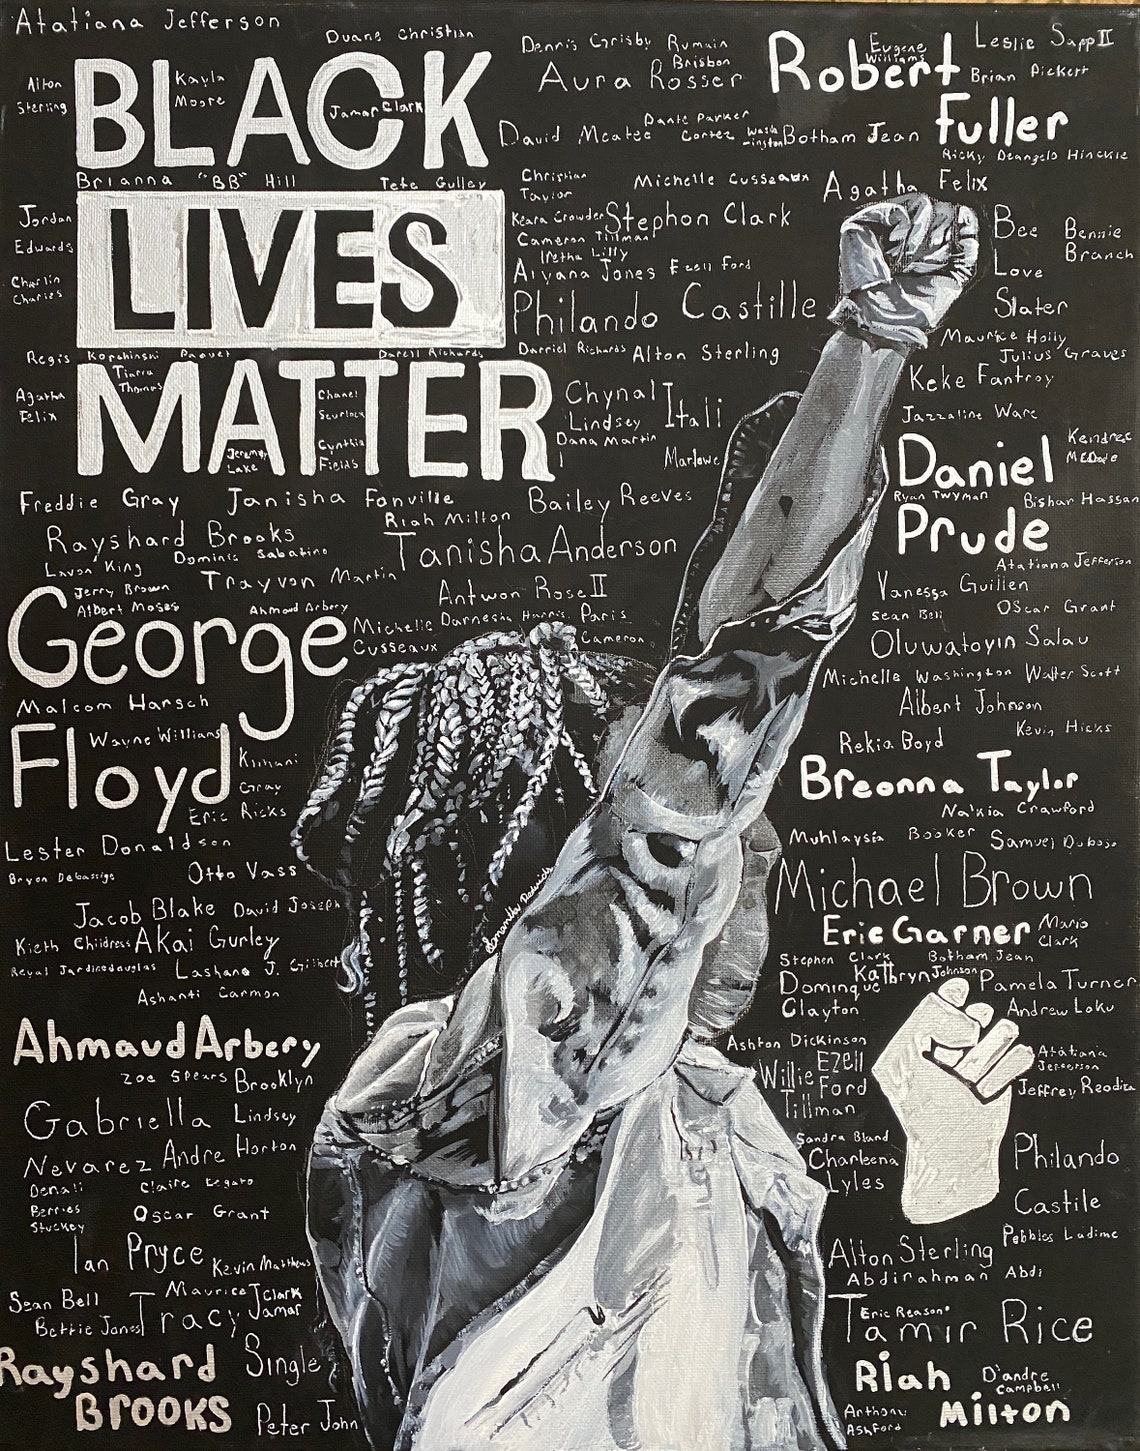 Atatiana Jefferson
Duane Christian
Dennis Grisby
Rumain
Brisbon
Aura Rosser
Robert
Eugene
Williams
Leslie Sapp II
Brian Pickett
Fuller
Alton
Sterling
BLACK
Kayla
Moore
Jamar Clark
David Mcatee
Dante Parker
Cortez
Wash
-ington
Botham Jean
Ricky Deangelo Hinckle
Brianna "BB" Hill
Tete Gulley
Christian
Taylor
Michelle Cusseaux
Agatha Felix
Jordan
Edwards
LIVES
Keara Crowder
Stephon Clark
Cameron Tillman
Iretha Lilly
Aiyana Jones
Ezell Ford
Bee
Love
Slater
Bennie
Branch
Charlin
Charles
Philando Castille
Regis Korchinski Paquet
Darell Richards
Darriel Richards
Alton Sterling
Maurice Holly
Julius Graves
MATTER
Tiarra
Thomas
Agatha
Felix
Chanel
Scurlock
Jeremy
Lake
Cynthia
Fields
Chynal
Lindsey
Dana Martin
Itali
Marlowe
Keke Fantroy
Jazzaline Ware
Daniel
Kendrec
McDade
Ryan Twyman
Bishar Hassan
Prude
Freddie Gray
Janisha Fonville
Bailey Reeves
Riah Milton
Rayshard Brooks
Dominic Sabatino
Tanisha Anderson
Lavon King
Trayvon Martin
Atatiana Jefferson
Jerry Brown
Albert Moses
Ahmaud Arbery
Antwon Rose II
Vanessa Guillen
Sean Bell
Oscar Grant
George
Michelle
Cusseaux
Darnesha Harris
Paris
Cameron
Oluwatoyin Salau
Michelle Washington
Walter Scott
Malcom Harsch
Albert Johnson
Kevin Hicks
Floyd
Wayne Williams
Kimani
Gray
Eric Ricks
Rekia Boyd
Breonna Taylor
Na'kia Crawford
Lester Donaldson
Muhlaysia Booker
Samuel Dubose
Bryon Debassige
Otto Vass
Michael Brown
Jacob Blake
David Joseph
Kieth Childress
Akai Gurley
Eric Garner
Mario
Clark
Reyal Jardinedouglas
Lashano J. Gilbert
Samantha
Stephen Clark
Botham Jean
Ashanti Carmon
Dominque
Clayton
Kathryn
Johnson
Pamela Turner
Andrew Loku
Ahmaud Arbery
Ashton Dickinson
Zoe Spears
Brooklyn
Lindsey
Willie
Tillman
Ezell
Ford
Atatiana
Jefferson
Gabriella
Nevarez
Andre Horton
Sandra Bland
Charleena
Lyles
Philando
Castile
Denali
Berries
Stuckey
Claire Legato
Oscar Grant
Ian Pryce
Kevin Matthews
Alton Sterling
Abdirahman Abdi
Sean Bell
Maurice
Clark
Jamar
Bettie Jones
Tracy
Single
Eric Reason
Tamir Rice
Rayshard
Brooks
Peter John
Riah
Milton
D'andre
Campbell
Anthony
Ashford